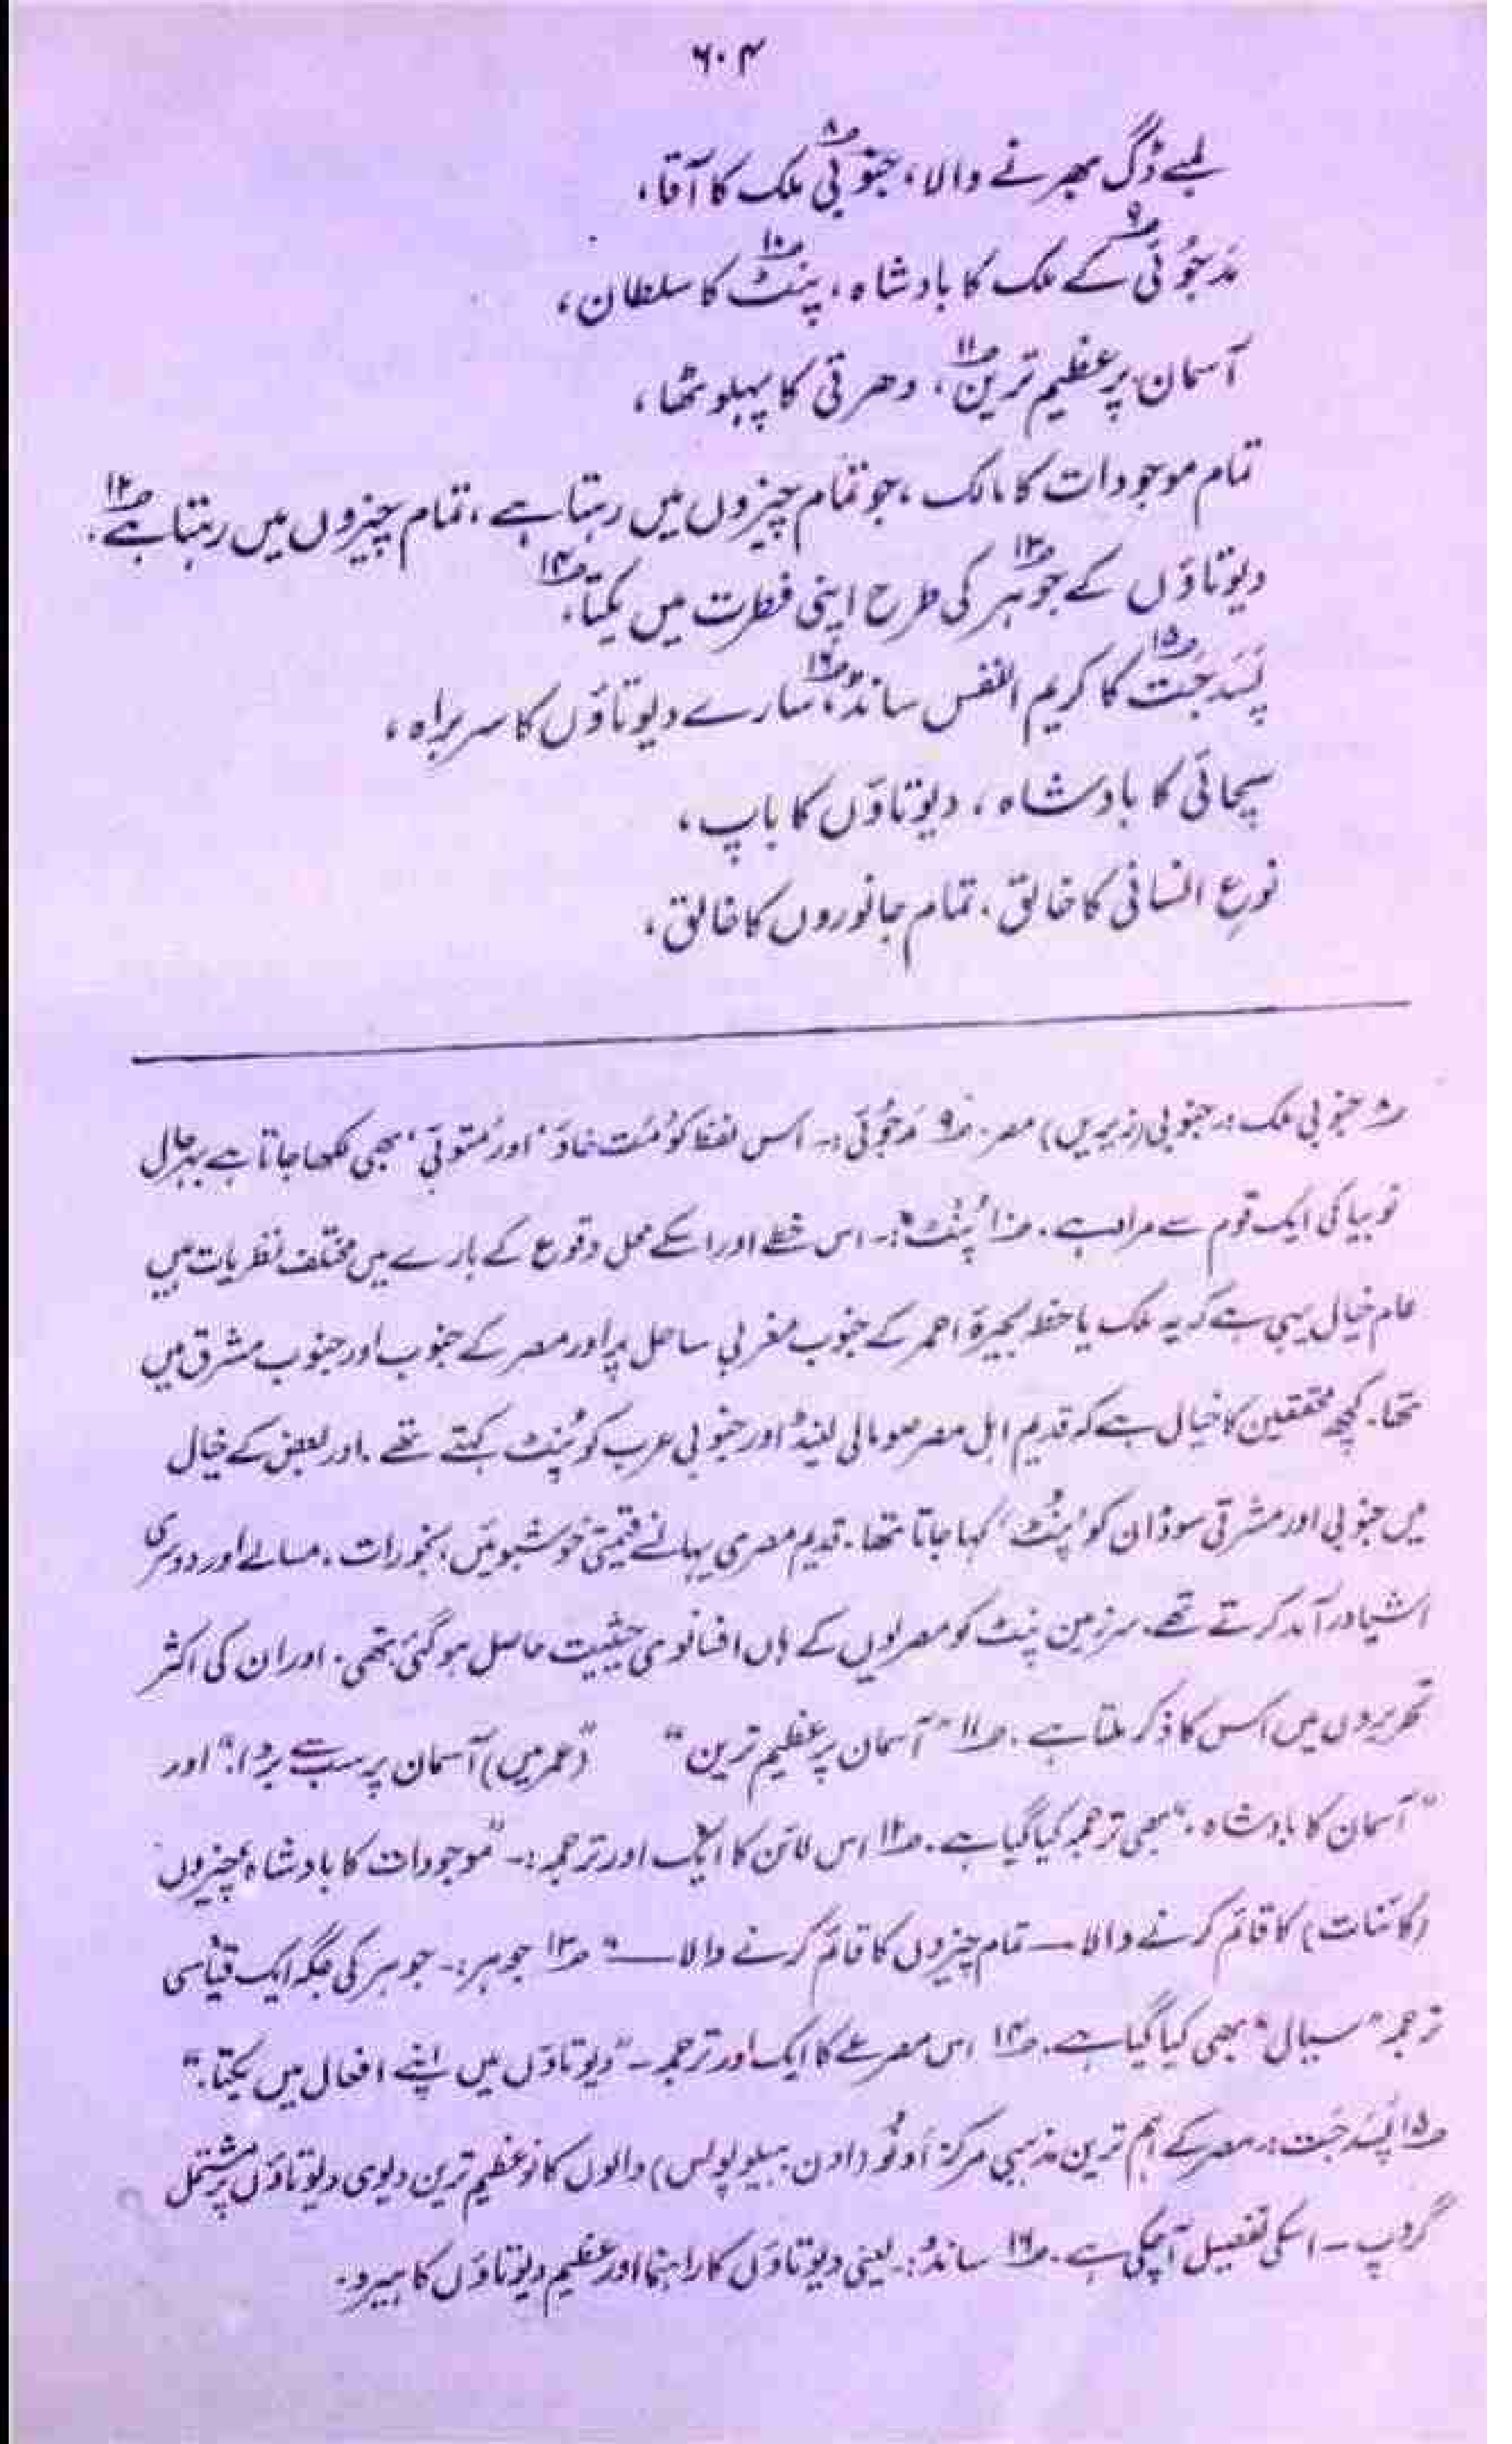 ۶۰۴
لمبے ڈگ بھرنے والا، جنوبی ؁۸ ملک کا آقا،
مَدجُوئی ؁۹ کے ملک کا بادشاہ، پنٹ ؁۱۰ کا سلطان،
آسمان پر عظیم ترین ؁۱۱، دھرتی کا پہلوٹھا،
تمام موجودات کا مالک، جو تمام چیزوں میں رہتا ہے، تمام چیزوں میں رہتا ہے ؁۱۲.
دیوتاؤں کے جوہر ؁۱۳ کی طرح اپنی فطرت میں یکتا ؁۱۴،
پَسَدجَت ؁۱۵ کا کریم النفس سانڈ ؁۱۶، سارے دیوتاؤں کا سربراہ،
سچائی کا بادشاہ، دیوتاؤں کا باپ،
نوعِ انسانی کا خالق، تمام جانوروں کا خالق،
جنوبی ملک :۔ جنوبی (زیریں) مصر. ؁۹ مَدجُوئی :۔ اس لفظ کو اور بھی لکھا جاتا ہے بہرحال
نوبیا کی ایک قوم سے مراد ہے. ؁۱۰ "پُنٹ" :۔ اس خطے اور اسکے محل وقوع کے بارے میں مختلف نظریات ہیں
عام خیال یہی ہے کہ یہ ملک یا خطہ بحیرۂ احمر کے جنوب مغربی ساحل پر اور مصر کے جنوب اور جنوب مشرق میں
تھا. کچھ محققین کا خیال ہے کہ قدیم اہل مصر صومالی لینڈ اور جنوبی عرب کو پُنٹ کہتے تھے. اور بعض کے خیال
میں جنوبی اور مشرقی سوڈان کو 'پُنٹ' کہا جاتا تھا. قدیم مصری یہاں سے قیمتی خوشبوئیں، بخورات، مسالے اور دوسری
اشیا درآمد کرتے تھے. سرزمین پنٹ کو مصریوں کے ہاں افسانوی حیثیت حاصل ہو گئی تھی. اور ان کی اکثر
تحریروں میں اس کا ذکر ملتا ہے. ؁۱۱ "آسمان پر عظیم ترین" "(عمر میں) آسمان پر سب سے بڑا." اور
"آسمان کا بادشاہ." بھی ترجمہ کیا گیا ہے. ؁۱۲ اس لائن کا ایک اور ترجمہ :۔ "موجودات کا بادشاہ، چیزوں
(کائنات) کا قائم کرنے والا — تمام چیزوں کا قائم کرنے والا —" ؁۱۳ جوہر :۔ جوہر کی جگہ ایک قیاسی
ترجمہ "سیال" بھی کیا گیا ہے. ؁۱۴ اس مصرعے کا ایک اور ترجمہ ۔ "دیوتاؤں میں اپنے افعال میں یکتا."
؁۱۵ پَسَدجَت :۔ مصر کے اہم ترین مذہبی مرکز اونُو (اون ہیلیوپولس) والوں کا نو عظیم ترین دیوی دیوتاؤں پر مشتمل
گروپ ۔ اسکی تفصیل آ چکی ہے. ؁۱۶ سانڈ :۔ یعنی دیوتاؤں کا راہنما اور عظیم دیوتاؤں کا ہیرو.